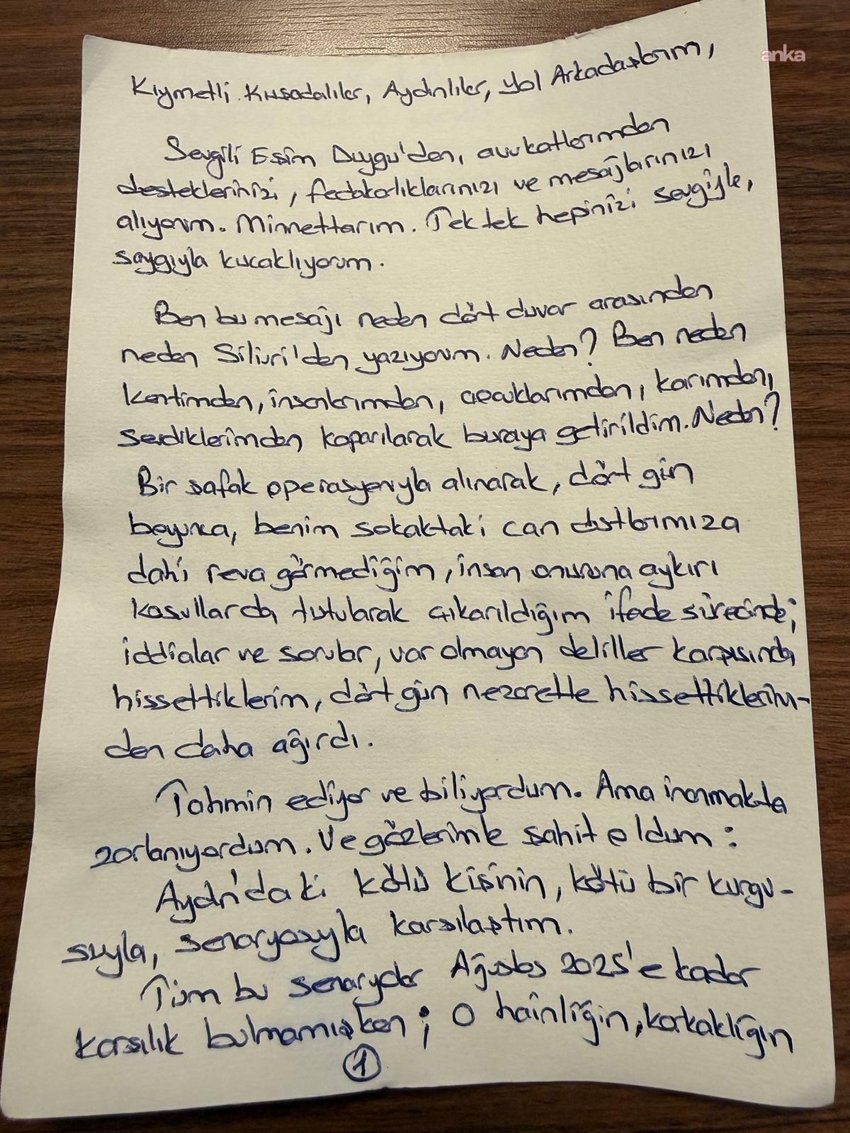 anka
Kıymetli Kuşadalılar, Aydınlılar, Yol Arkadaşlarım,
Sevgili Eşim Duygu'dan, avukatlarımdan
desteklerinizi, fedakarlıklarınızı ve mesajlarınızı
alıyorum. Minnettarım. Tek tek hepinizi sevgiyle,
saygıyla kucaklıyorum.
Ben bu mesajı neden dört duvar arasından
neden Silivri'den yazıyorum. Neden? Ben neden
kentimden, insanlarımdan, çocuklarımdan, karımdan,
sevdiklerimden koparılarak buraya getirildim. Neden?
Bir şafak operasyonuyla alınarak, dört gün
boyunca, benim sokaktaki can dostlarımıza
dahi reva görmediğim, insan onuruna aykırı
koşullarda tutularak çıkarıldığım ifade sürecinde;
iddialar ve sorular, var olmayan deliller karşısında
hissettiklerim, dört gün nezarette hissettiklerim-
den daha ağırdı.
Tahmin ediyor ve biliyordum. Ama inanmakta
zorlanıyordum. Ve gözlerimle şahit oldum:
Aydın'daki kötü kişinin, kötü bir kurgu-
suyla, senaryosuyla karşılaştım.
Tüm bu senaryolar Ağustos 2025'e kadar
karşılık bulmamışken; o hainliğin, korkaklığın
1